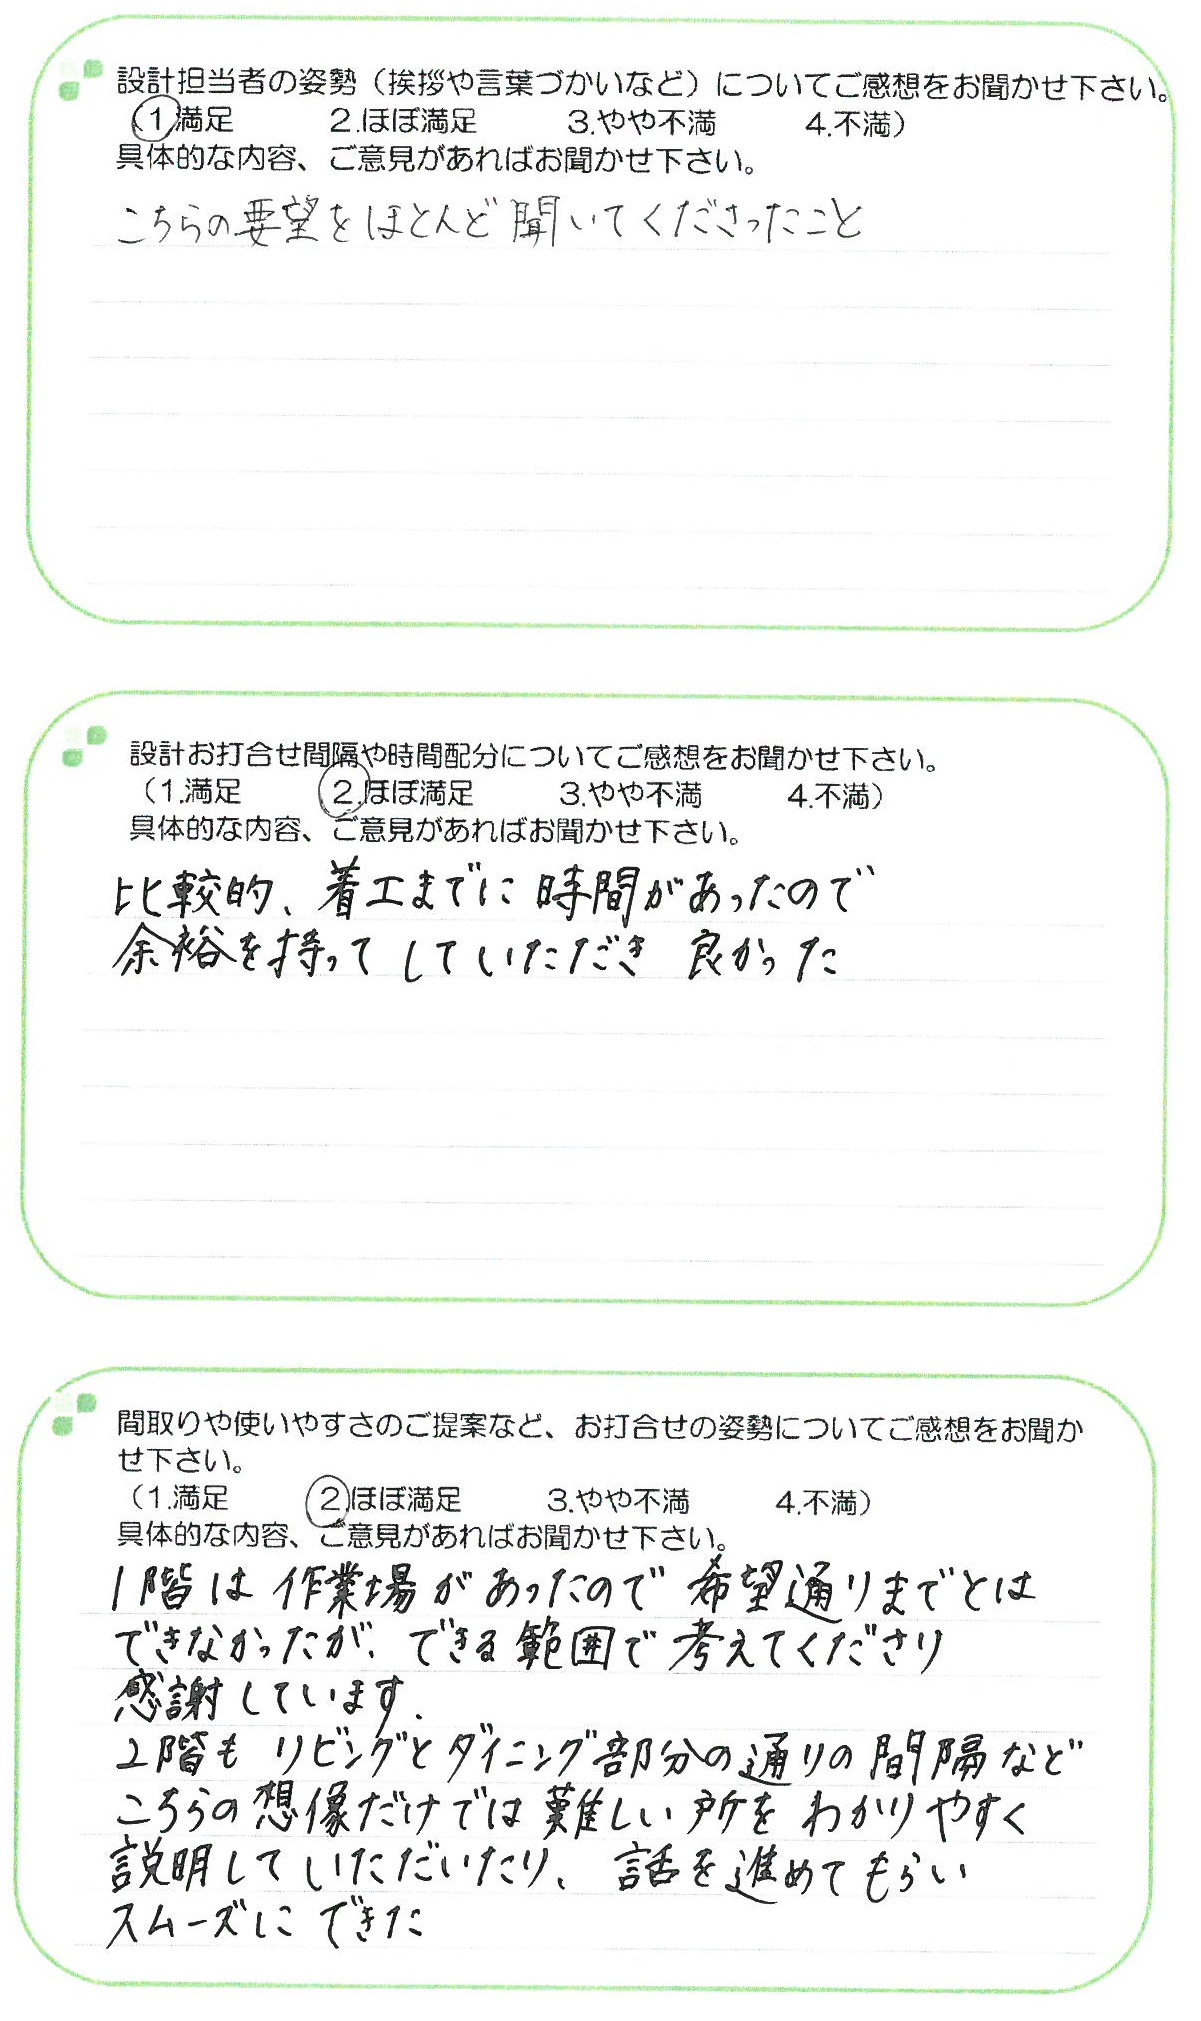 設計担当者の姿勢（挨拶や言葉づかいなど）についてご感想をお聞かせ下さい。
（1.満足 2.ほぼ満足 3.やや不満 4.不満）
具体的な内容、ご意見があればお聞かせ下さい。
こちらの要望をほとんど聞いてくださったこと
設計お打合せ間隔や時間配分についてご感想をお聞かせ下さい。
（1.満足 2.ほぼ満足 3.やや不満 4.不満）
具体的な内容、ご意見があればお聞かせ下さい。
比較的、着工までに時間があったので
余裕を持ってしていただき 良かった
間取りや使いやすさのご提案など、お打合せの姿勢についてご感想をお聞か
せ下さい。
（1.満足 2.ほぼ満足 3.やや不満 4.不満）
具体的な内容、ご意見があればお聞かせ下さい。
1階は作業場があったので希望通りまでとは
できなかったが、できる範囲で考えてくださり
感謝しています.
2階も リビングとダイニング部分の通りの間隔など
こちらの想像だけでは難しい所をわかりやすく
説明していただいたり、話を進めてもらい
スムーズにできた